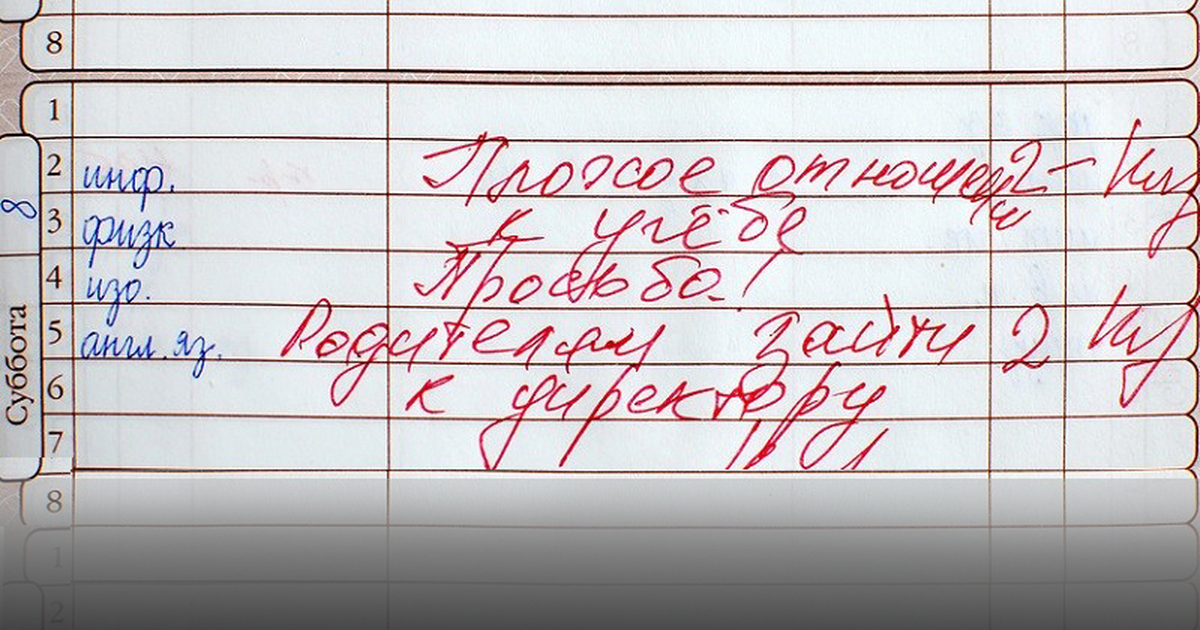 8
1
2 инф. Плохое отношени 2-
3 физк к учёбе
8
4 изо. Просьба!
5 англ. яз. Родителям зайти 2
6 к директору
Суббота
7
8
1
2